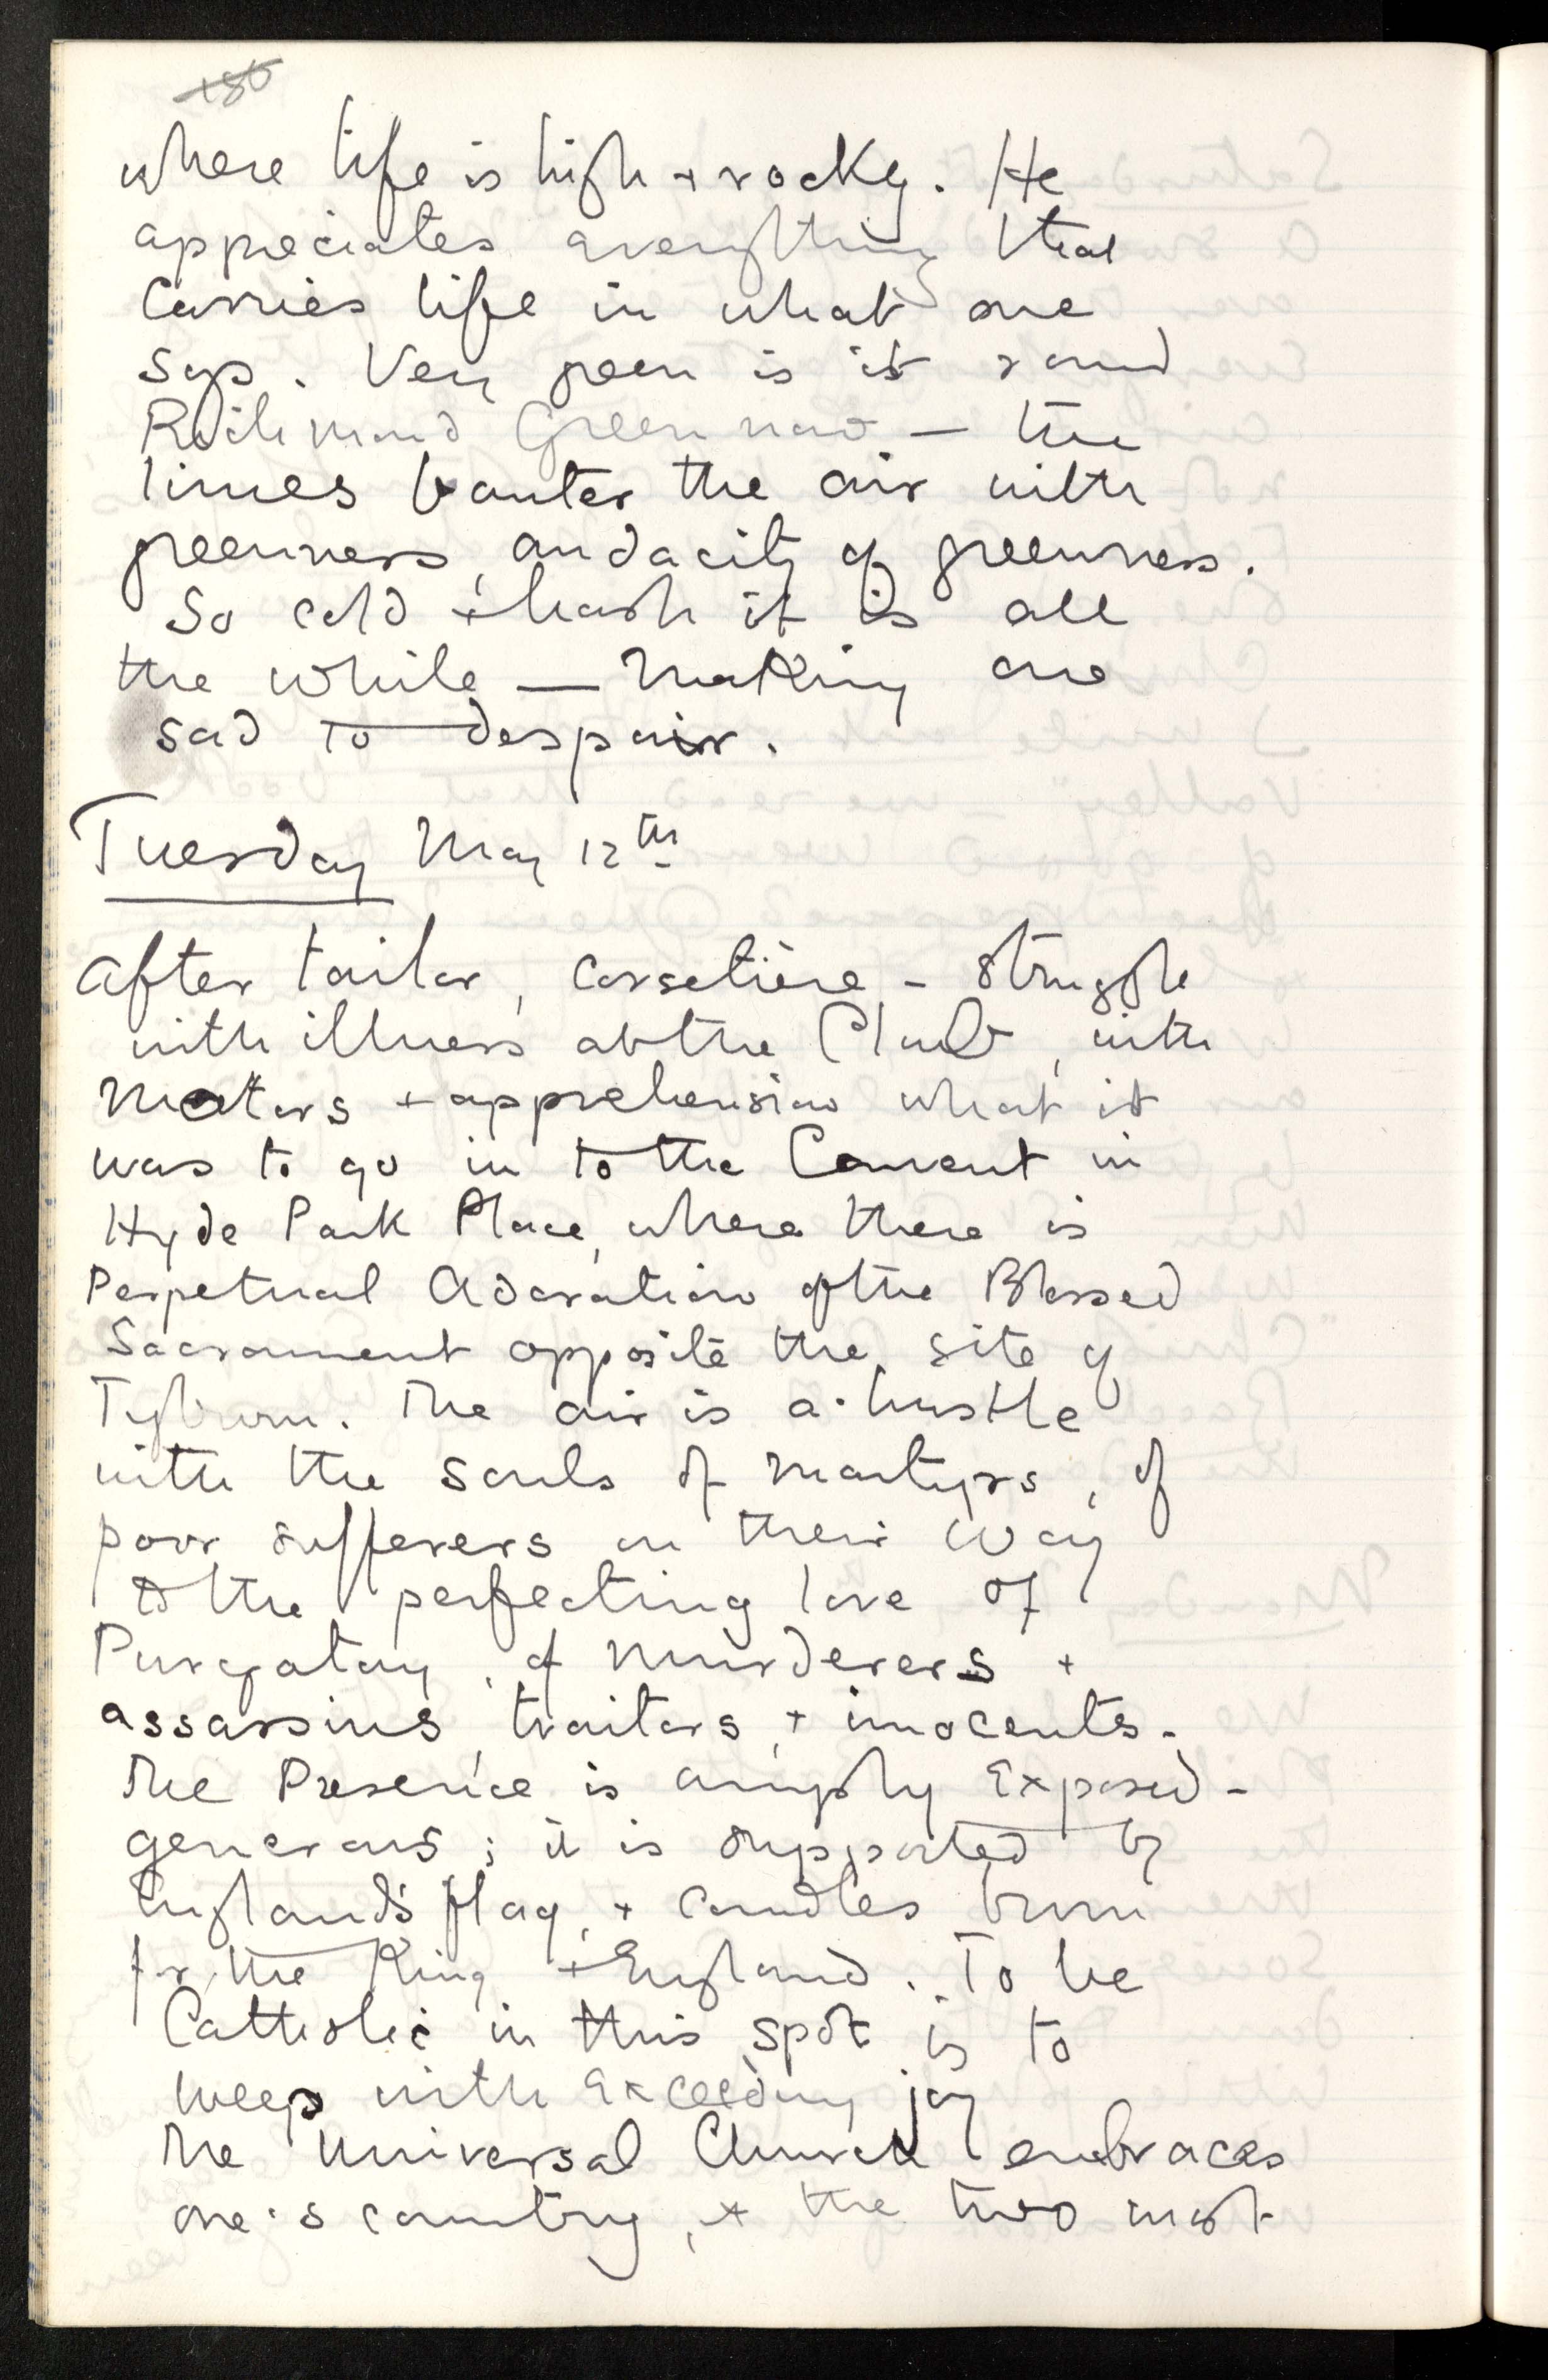 where life is high + rocky. He
appreciates everything that
carries life in what one
says. Very green is it round
Richmond Green now — the
limes banter the air with
greenness, audacity of greenness.
So cold + harsh it is all
the while — making one
sad to despair.
Tuesday May 12th
After tailor, corsetière - struggle
with illness at the Club, with
motors + apprehension what it
was to go in to the Convent in
Hyde Park Place, where there is
Perpetual Adoration of the Blessed
Sacrament opposite the site of
Tyburn. The air is a-hustle
with the souls of martyrs, of
poor sufferers on their way
to the perfecting love of
Purgatory, of murderers +
assassins, traitors, + innocents.
The Presence is amply Exposed -
generous; it is supported by
England's flag, + candles burn
for the King + England. To be
Catholic in this spot is to
weep with exceeding joy
The Universal Church embraces
one's country, + the two most